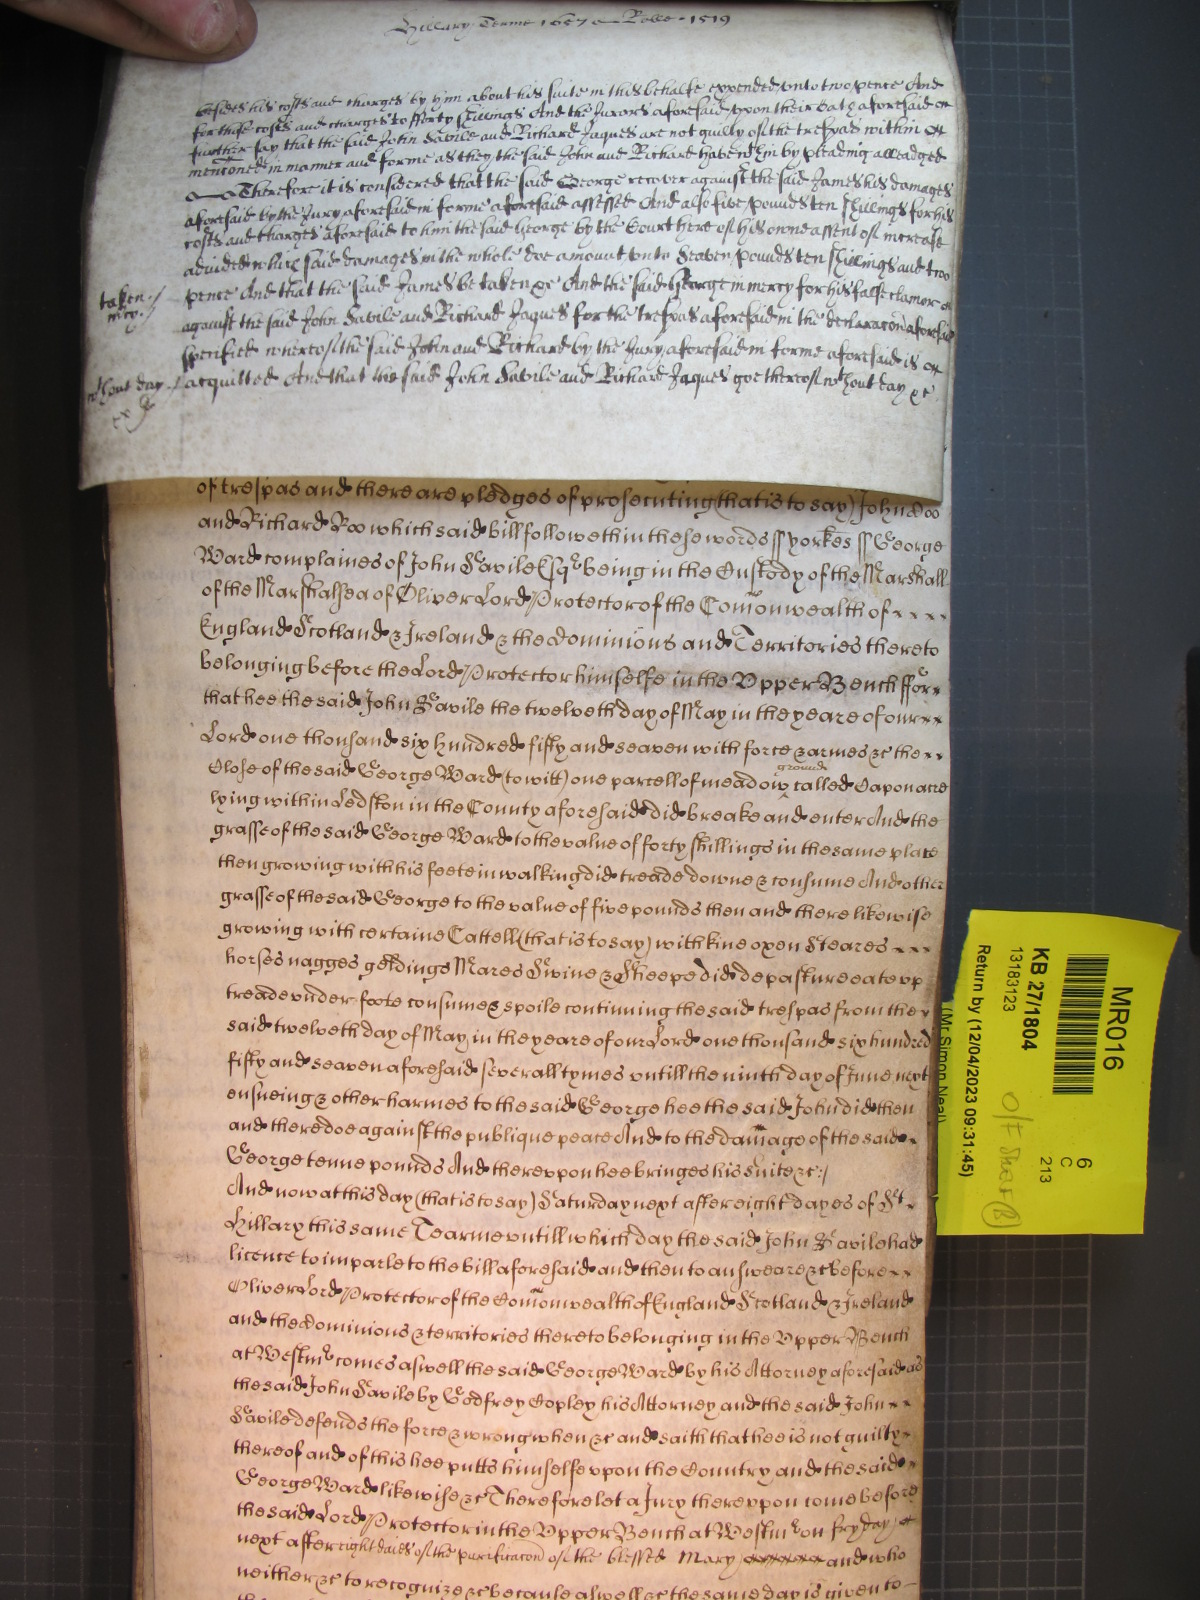 Hillary Terme 1657 Rolle 1519
besides his costs and charges by hym about his suite in this behalfe expended unto two pence And
for those costs and charges to fforty shillings And the Jurors aforesaid upon their oath aforesaid
further say that the said John Savile and Richard Jaques are not guilty of the trespas within
menconed in manner and forme as they the said John and Richard have within by pleading alleadged
Therefore it is considered that the said George recover against the said James his damages
aforesaid by the Jury aforesaid in forme aforesaid assessed And also five pounds ten shillings for his
costs and charges aforesaid to him the said George by the Court here of his owne assent of increase
adiudged which said damages in the whole doe amount unto Seaven pounds ten shillings and two
pence And that the said James be taken &c And the said George in mercy for his false clamor
against the said John Savile and Richard Jaques for the trespas aforesaid in the declaracon aforesaid
specified whereof the said John and Richard by the Jury aforesaid in forme aforesaid is
acquitted And that the said John Savile and Richard Jaques goe thereof wthout day &c
taken /
mcy /
wthout day /
of trespas and there are pledges of prosecuting (that is to say) John Doo
and Richard Roo which said bill followeth in these words ss yorkes ss George
Ward complaines of John Savile Esqr being in the Custody of the Marshall
of the Marshalsea of Oliver Lord Protector of the Comonwealth of
England Scotland & Ireland & the dominions and Territories thereto
belonging before the Lord Protector himselfe in the Upper Bench ffor
that hee the said John Savile the twelveth day of May in the yeare of our
Lord one thousand six hundred fifty and seaven with force & armes &c the
Close of the said George Ward (to witt) one parcell of meadow ground called Capon acre
lying within Ledston in the County aforesaid did breake and enter And the
grasse of the said George Ward to the value of forty shillings in the same place
then growing with his feete in walking did treade downe & consume And other
grasse of the said George to the value of five pounds then and there likewise
growing with certaine Cattell (that is to say) with kine oxen Steares
horses nagges geldings Mares Swine & Sheepe did depasture eate up
treade under foote consume & spoile continuing the said trespas from the
said twelveth day of May in the yeare of our Lord one thousand six hundred
fifty and seaven aforesaid severall tymes untill the ninth day of June next
ensueing & other harmes to the said George hee the said John did then
and there doe against the publique peace And to the damage of the said
George tenne pounds And thereupon hee bringes his suite &c /
And now at this day (that is to say) Saturday next after eight dayes of St
Hillary this same Tearme untill which day the said John Savile had
licence to imparle to the bill aforesaid and then to answeare &c before
Oliver Lord Protector of the Comonwealth of England Scotland & Ireland
and the dominions & territories thereto belonging in the Upper Bench
at Westmr comes aswell the said George Ward by his Attorney aforesaid as
the said John Savile by Godfrey Copley his Attorney and the said John
Savile defends the force & wrong when &c and saith that hee is not guilty
thereof and of this hee putts himselfe upon the Country and the said
George Ward likewise &c Therefore let a Jury thereupon come before
the said Lord Protector in the Upper Bench at Westmr on fryday
next after eight daies of the purificacon of the blessed Mary and who
neither &c to recognize &c because aswell &c the same day is given to
MR016
KB 27/1804
13183123
Return by (12/04/2023 09:31:45)
(Mr Simon Neal)
6
C
213